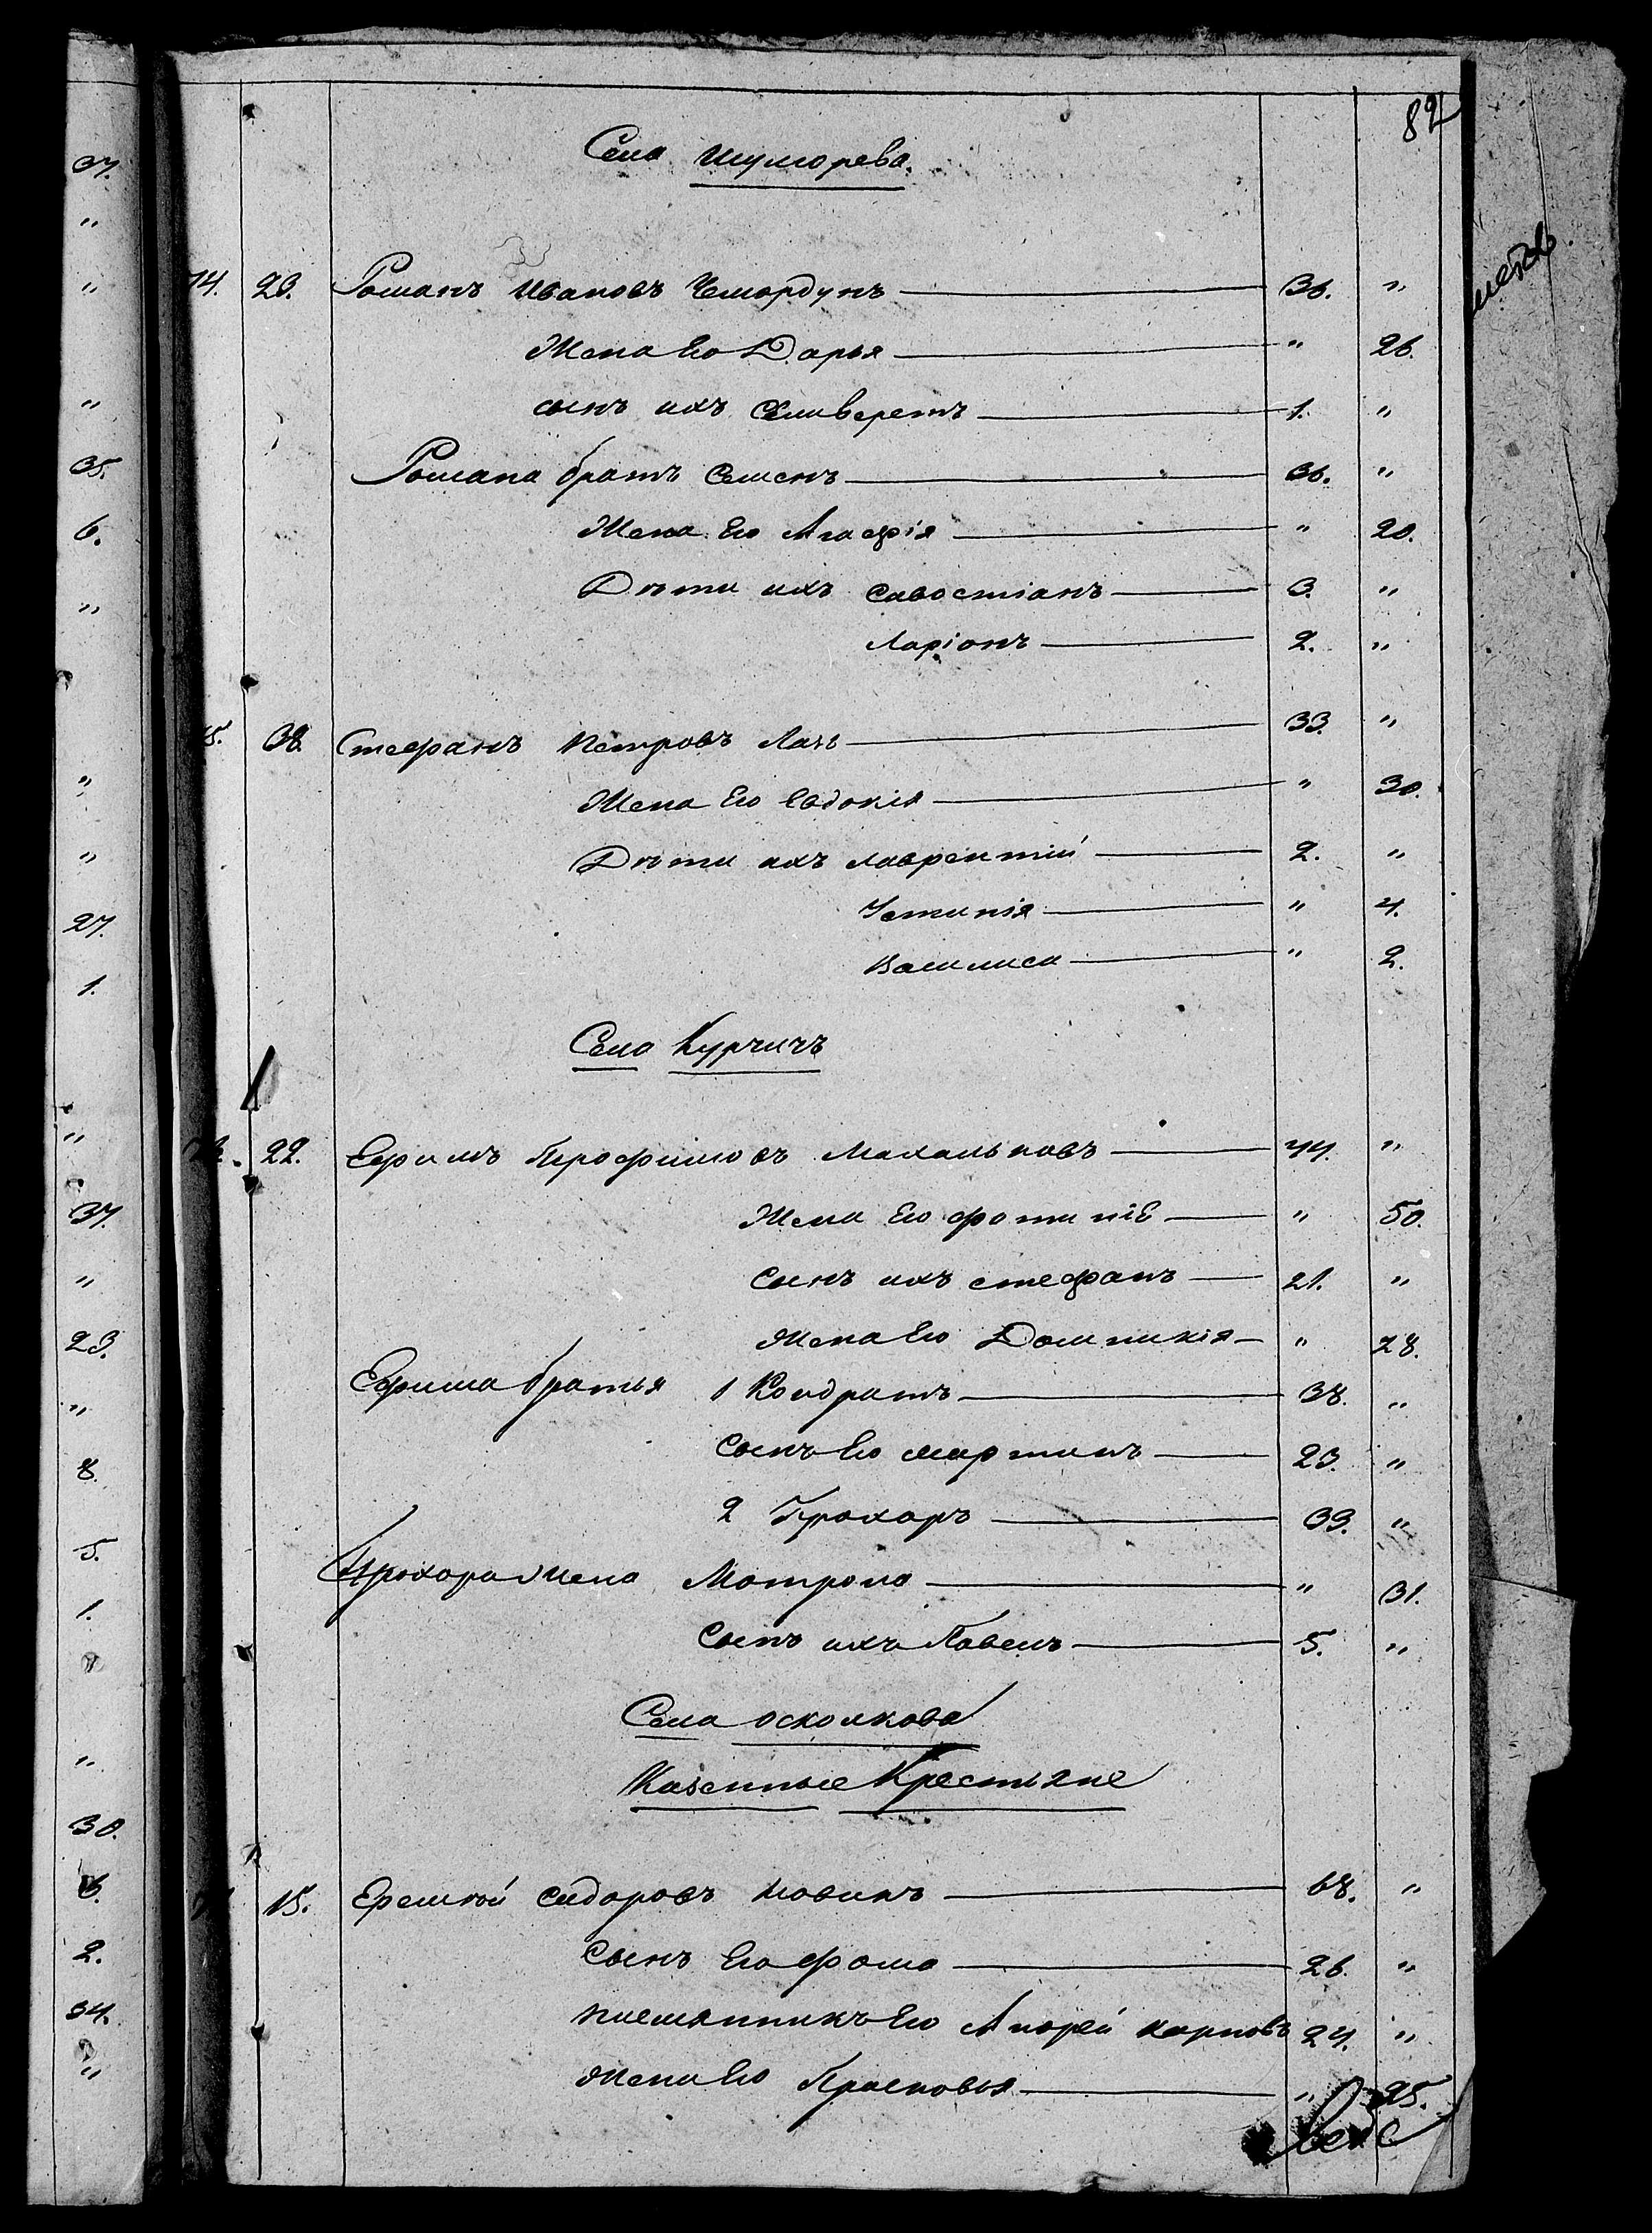 82
Села Шуморева.
14. 23. Романъ Ивановъ Чемордунъ 36. "
Жена Его Дарья " 26.
сынъ ихъ Селиверстъ 1. "
Романа братъ Семенъ 36. "
Жена Его Агафія " 20.
Дѣти ихъ Савостіанъ 3. "
Ларіонъ 2. "
15. 38. Стефанъ Петровъ Лазь 33. "
Жена Его Евдокія " 30.
Дѣти ихъ Лаврентій 2. "
Устинія " 4.
Василиса " 2.
Села Курчичъ
22. Ефимъ Трофимовъ Махальковъ 44. "
Жена Его Фотиніе " 50.
Сынъ ихъ Стефанъ 21. "
Жена Его Домникія " 28.
Ефима братья 1 Кондратъ 38. "
Сынъ Его Мартинъ 23. "
2 Прохоръ 33. "
Прохора жена Матрона " 31.
Сынъ ихъ Павелъ 5. "
Села Осколкова
Казенные Крестьяне
15. Еремѣй Сидоровъ Новикъ 68. "
Сынъ Его Фома 26. "
племянникъ Его Андрей Карповъ 24. "
Жена Его Прасковья " 25.
37.
"
"
"
35.
6.
"
"
"
27.
1.
"
37.
"
23.
"
8.
5.
1.
"
30.
6.
2.
34.
"